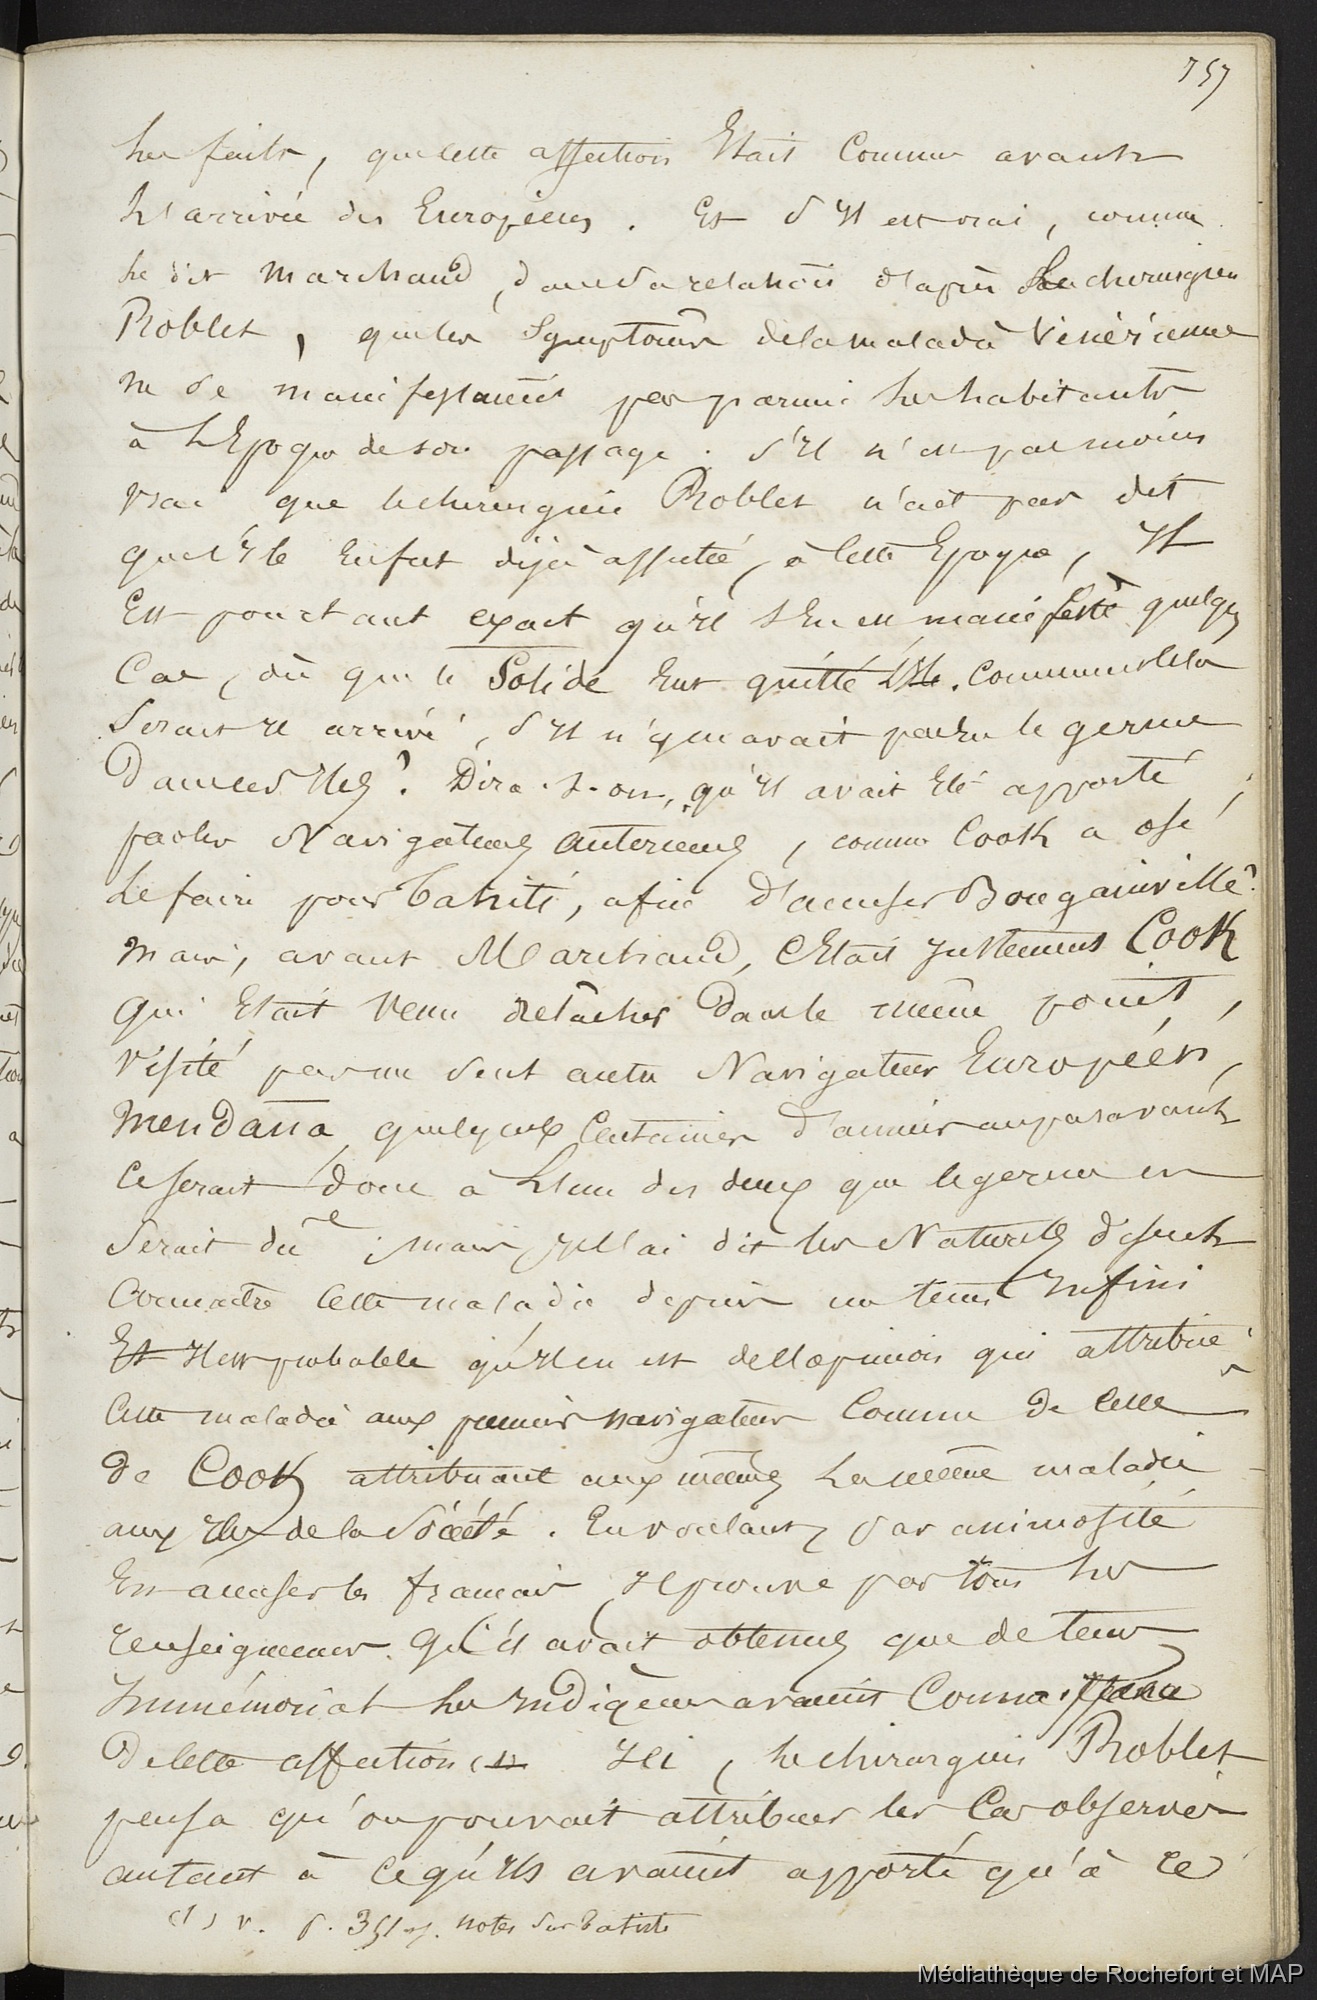 757
les faits, que cette affection Etait Connue avant
L'arrivée des Européens. Et s'Il est vrai, comme
le dit Marchand, dans sa relation d'après le chirurgien
Roblet, que les Symptômes de la maladie Vénérienne
ne se manifestaient pas parmi les habitants
à L'Epoque de son passage. s'Il n'est pas moins
vrai que le chirurgien Roblet n'ait pas dit
qu'elle Enfut déjà affectée, à cette Epoque, Il
Est pourtant exact qu'Il s'en en manifesta quelques
Cas, dès que le Solide Eut quitté L'Ile. Comment cela
Serait Il arrivé, s'Il n'y en avait pas eu le germe
Dans ces Iles? Dira-t-on, qu'Il avait Eté apporté
par les Navigateurs anterieurs, comme Cook a osé
Le faire pour Tahiti, afin d'accuser Bougainville?
Mais, avant Marchand, C'Etait Justement Cook
qui Etait Venu relâcher Dans le même point,
Visité par un seul autre Navigateur Européen,
Mendana quelques Centaines d'années auparavant
Ce serait donc à L'un des deux que le germe en
Serait dû; mais, Je l'ai dit les Naturels disent
Connaitre Cette maladie depuis un tems Infini
Et Il est probable qu'Il en est de l'opinion qui attribue
Cette maladie aux premiers navigateurs Comme de Celle
de Cook attribuant aux mêmes La même maladie
aux Iles de la Société. En voulant, par animosité
En accuser les français, Il prouve par tous les
renseignemens qu'Il avait obtenus que de tems
Immémorial les Indigènes avaient Connaissance
De Cette affection (1) Ici, le chirurgien Roblet
pensa qu'on pouvait attribuer les Cas observés
autant à Ce qu'Ils avaient apporté qu'à ce
(1) v. p. 351 notes sur Tahiti
Médiathèque de Rochefort et MAP